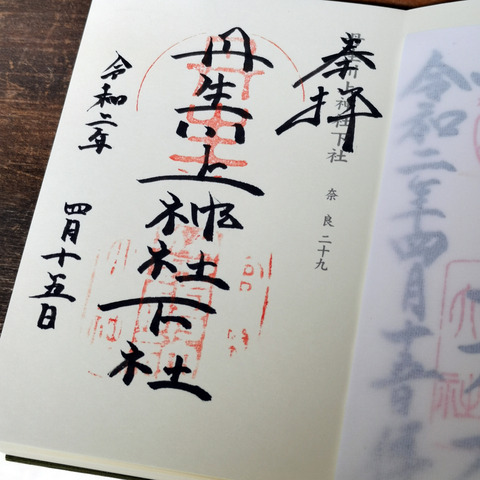 奉拝
丹生川上神社下社
奈良二十九
丹生川上神社下社
令和二年
四月十五日
令和二年四月十五日